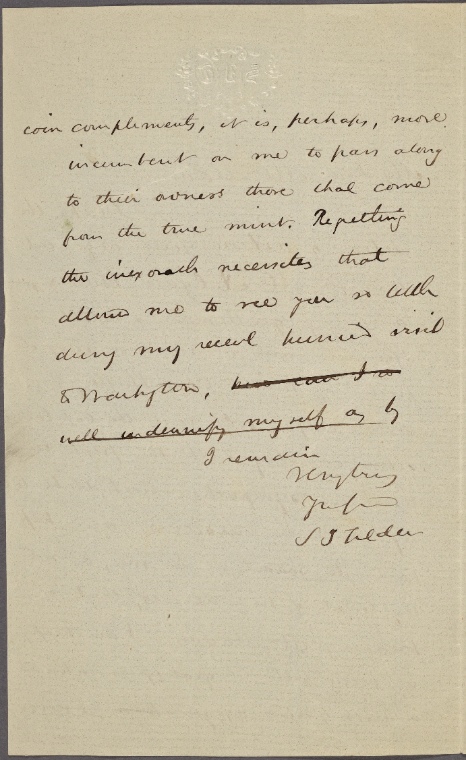 coin compliments, it is, perhaps, more
incumbent on me to pass along
to their owners those that come
from the true mint. Regretting
the inexorable necessities that
allowed me to see you so little
during my recent hurried visit
to Washington, how can I so
well indemnify myself as by
I remain
Very truly
Your friend
S J Tilden